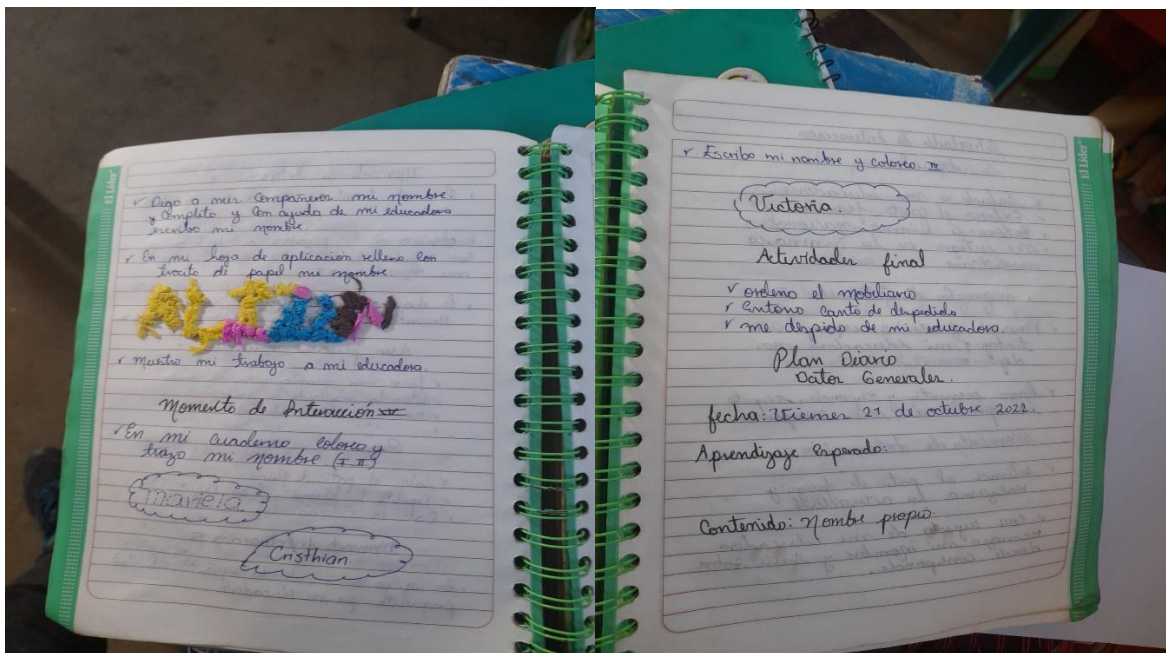 El Líder
✓ Digo a mis compañeros mi nombre
y completo y con ayuda de mi educadora
escribo mi nombre.
✓ En mi hoja de aplicacion relleno con
trocito de papel mi nombre
✓ Muestro mi trabajo a mi educadora.
Momento de Interacción
✓ En mi cuaderno coloreo y
trazo mi nombre (I II)
Mariela
Cristhian.
El Líder
✓ Escribo mi nombre y coloreo. III
Victoria.
Actividades final
✓ ordeno el mobiliario
✓ Entono canto de despedida
✓ me despido de mi educadora.
Plan Diario
Datos Generales.
fecha: Viernes 21 de octubre 2022.
Aprendizaje Esperado:
Contenido: Nombre propio